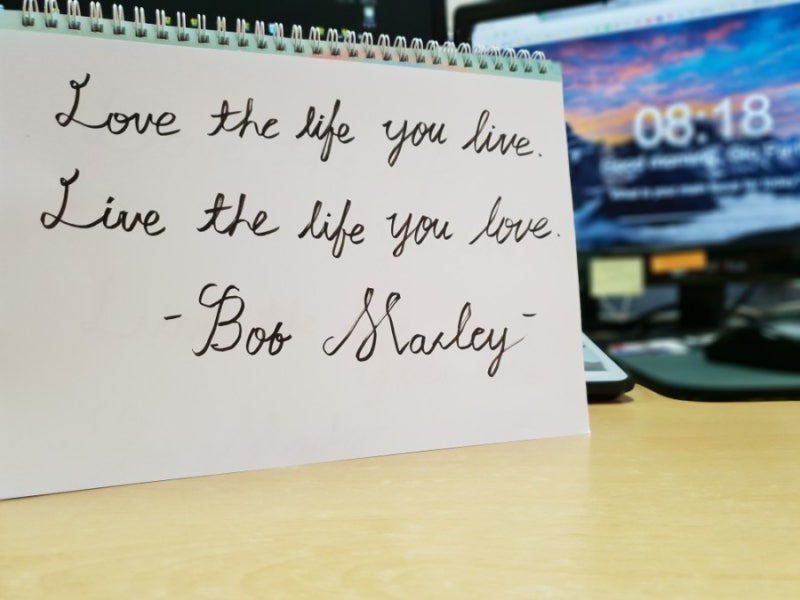 Love the life you live.
Live the life you love.
- Bob Marley -
08:18
Good morning,